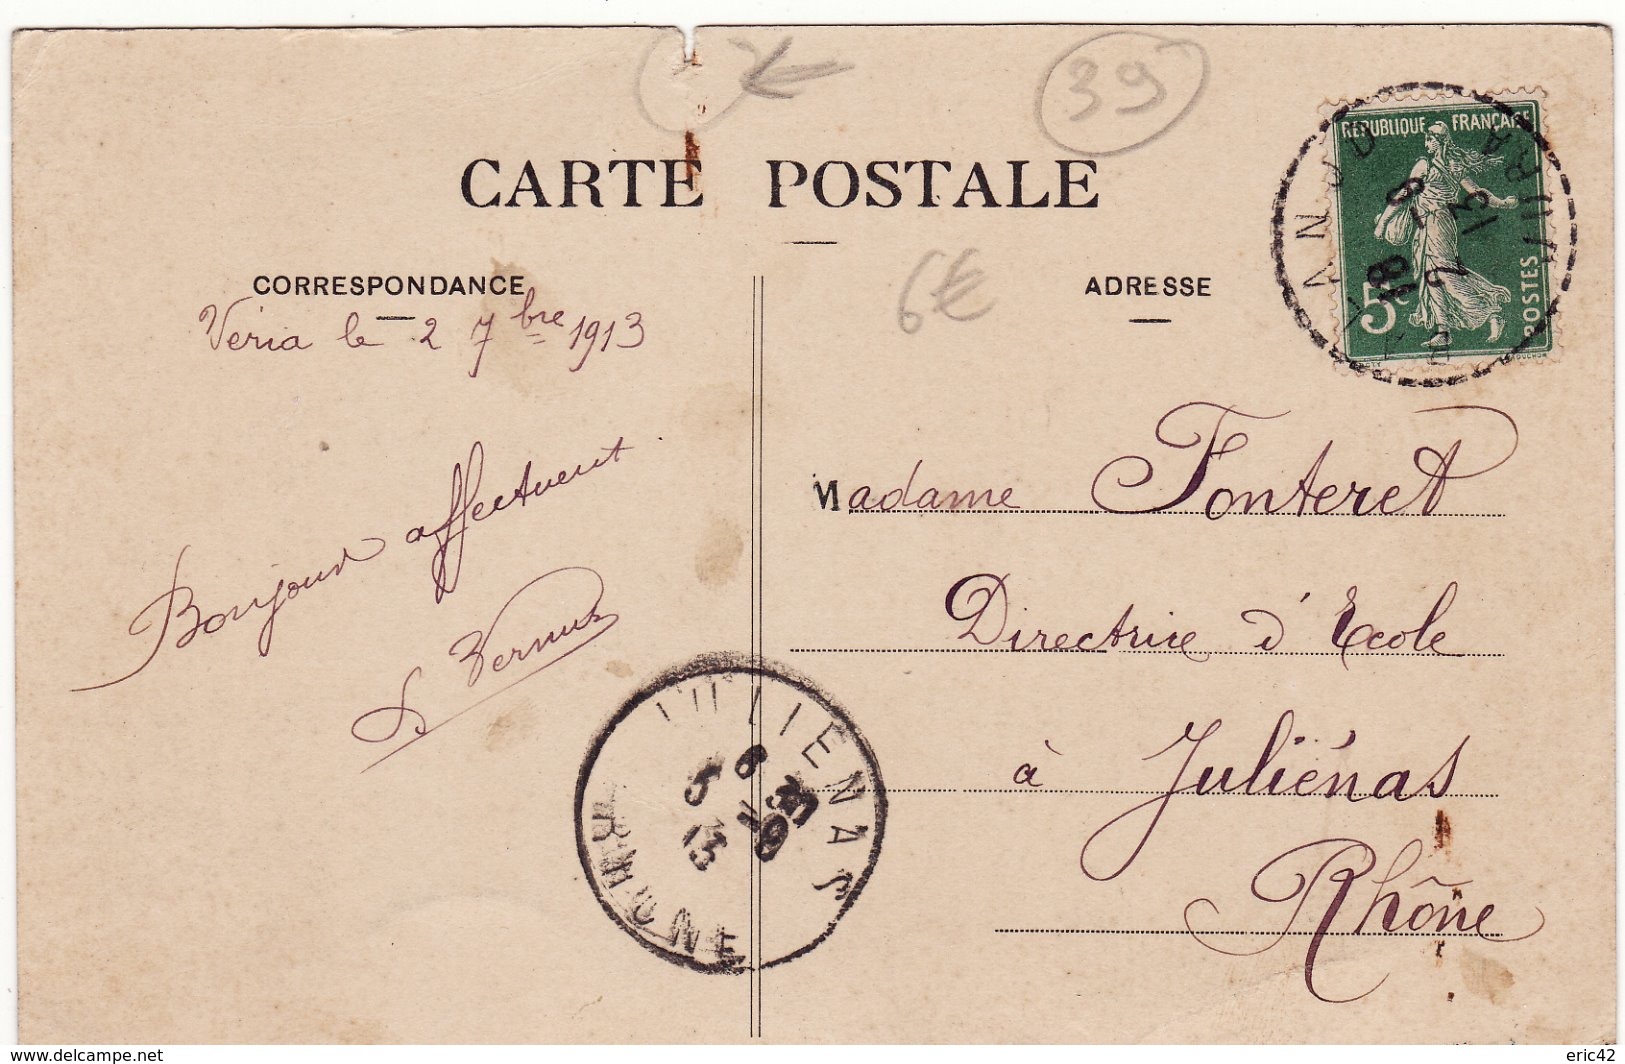 €
39
RÉPUBLIQUE FRANÇAISE
5c
POSTES
18
2 -9
13
JURA
CARTE POSTALE
CORRESPONDANCE
ADRESSE
6€
Véria le 2 7bre 1913
Bonjour affectuent
Madame Fonteret
Directrice d'Ecole
à Juliénas
Rhône
JULIENAS
6 30
5 -9
13
RHONE
delcampe.net
eric42